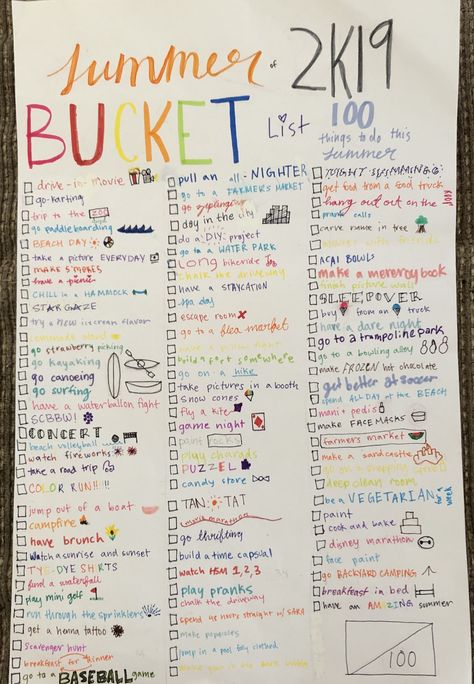 Summer of 2K19
BUCKET List
100
things to do this
summer
drive-in-movie
go-karting
trip to the ZOO
go paddle boarding
BEACH DAY
take a picture EVERYDAY
MAKE S'MORES
have a picnic
CHILL in a HAMMOCK
STAR GAZE
try a new icecream flavor
lemonade stand
go strawberry picking
go kayaking
go canoeing
go surfing
have a water ballon fight
SCBBW!
CONCERT
beach volleyball
watch fireworks
take a road trip
COLOR RUN!!!!
jump out of a boat
campfire
have brunch
Watch a sunrise and sunset
TYE-DYE SHIRTS
find a waterfall
play mini golf
run through the sprinklers
get a henna tattoo
Scavenger hunt
breakfast for dinner
go to a BASEBALL game
pull an all-NIGHTER
go to a FARMERS MARKET
go ziplining
day in the city
do a DIY project
go to a WATER PARK
LONG bikeride
chalk the driveway
have a STAYCATION
spa day
escape room
go to a flea market
have a pillow fight
build a fort somewhere
go on a hike
take pictures in a booth
snow cones
fly a kite
game night
paint rocks
play charads
PUZZEL
candy store
TAN TAT
movie marathon
go thrifting
build a time capsul
watch HSM 1,2,3
play pranks
chalk the driveway
spend 48 hours straight w/ SARA
make popsicles
jump in a pool fully clothed
NIGHT SWIMMING
get food from a food truck
hang out on the
prank calls
carve name in tree
ACAI BOWLS
make a memeroy book
finish picture wall
SLEEPOVER
buy from an truck
have a dare night
go to a trampoline park
go to a bowling alley
make FROZEN hot chocolate
get better at soccer
spend ALL DAY at the BEACH
mani + pedis
make FACE MASKS
farmer's market
make a sandcastle
go on a shopping spree
deep clean room
be a VEGETARIAN for a week
paint
cook and bake
disney marathon
face paint
go BACKYARD CAMPING
breakfast in bed
have an AMAZING summer
100